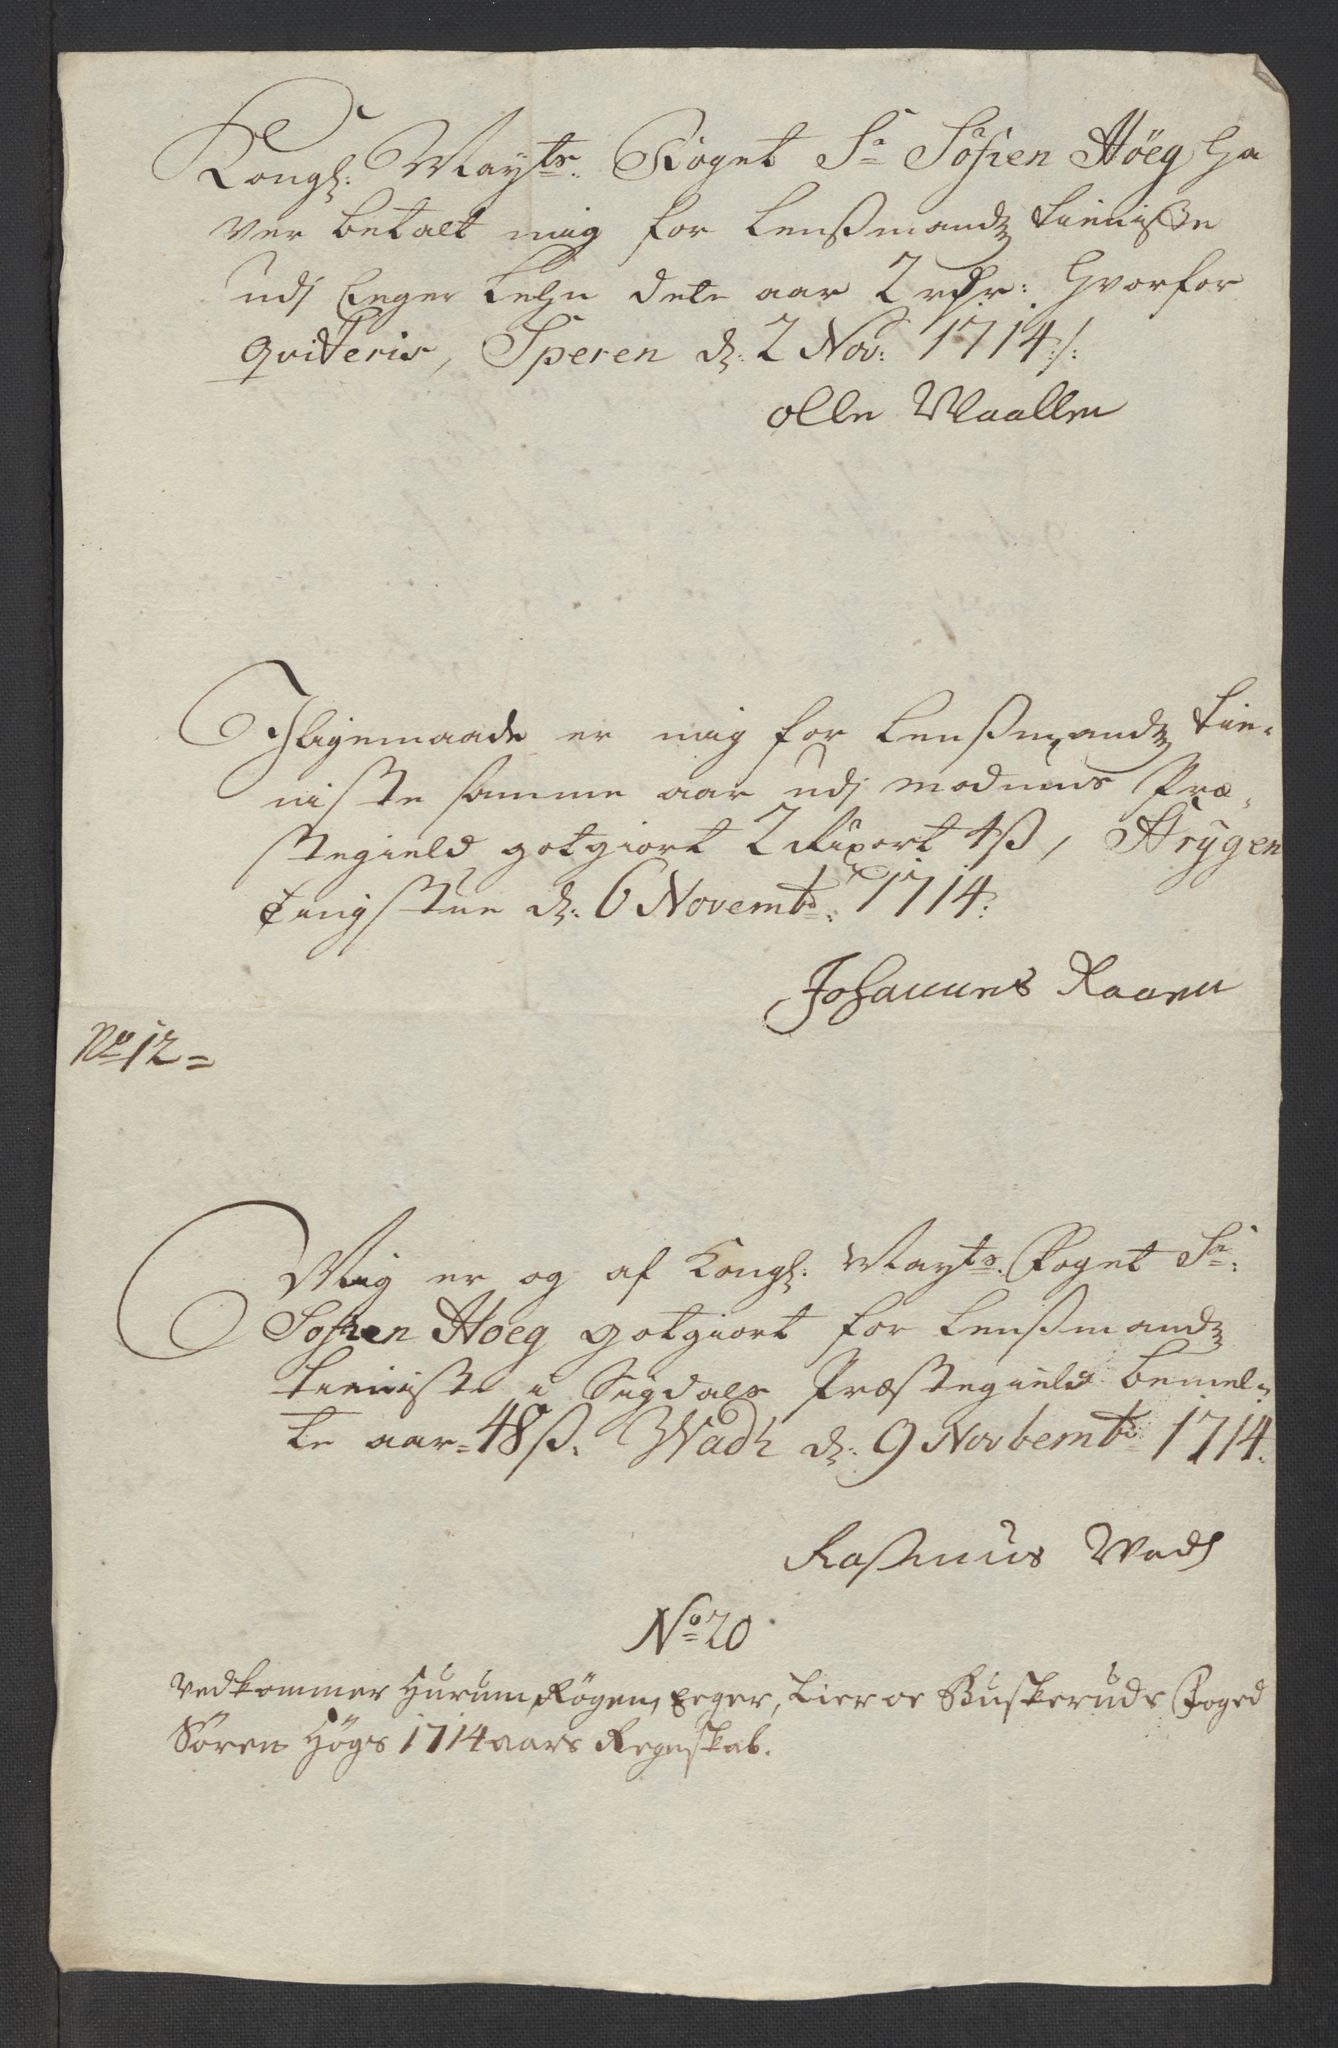 Kongl: Mayts: Foget Sr Søfren Høeg ha
ver betalt mig for Lenßmandz tieniste
udj Eeger Lehn dete aar 2 rdr: hvorfor
qviteris, Speren d: 2 Nov: 1714:/:
Olle Maallen
Iligemaade er mig for Lenßmandz tie-
niste samme aar udj Modums Præ-
stegield gotgiort 2 Rixort 4ß, Strygen
tingstue d: 6 Novembr: 1714:
Johannes Raaen
No 12=
Mig er og af Kongl: Mayts: Foget Sr:
Søfren Høeg gotgiort for Lenßmandz
tieniste i Sigdals Præstegield bemel-
te aar=48ß. Wadh d: 9 Novbembr: 1714.
Raßmus Wedh
No 20
Vedkommer Hurum, Røgen, Eeger, Lier oc Buskeruds Foged
Søren Høgs 1714 aars Regnskab.